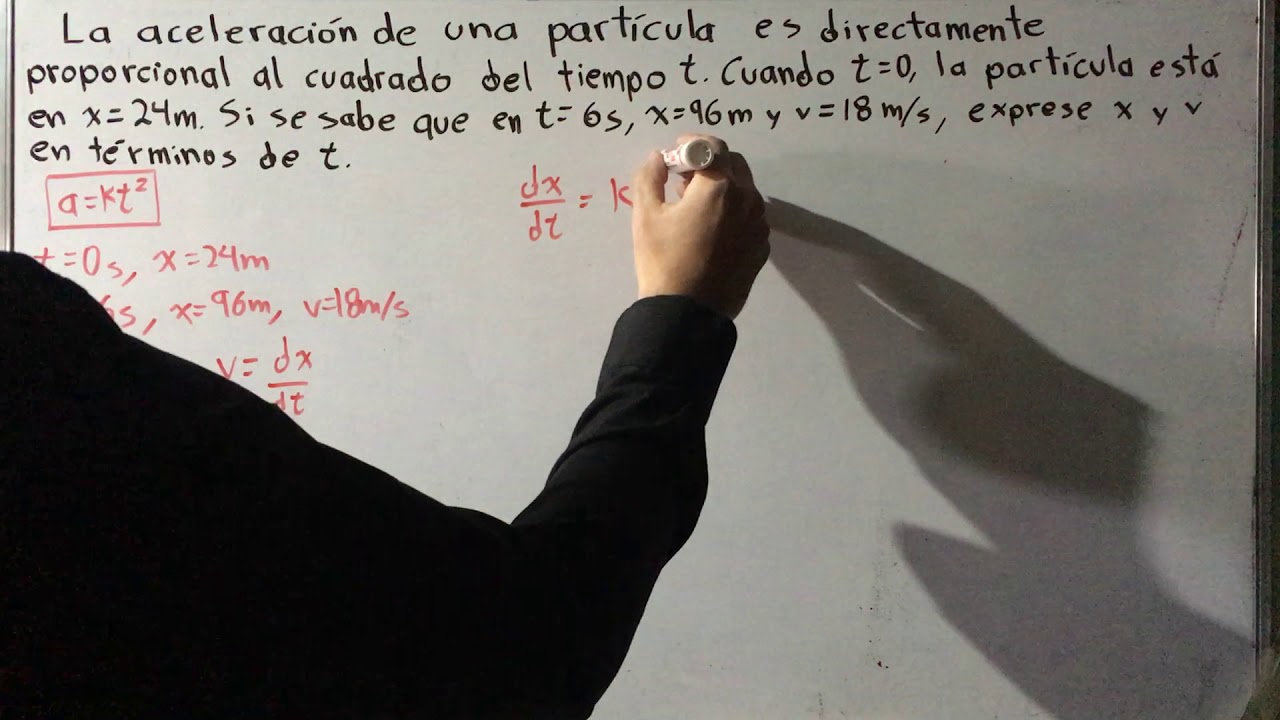 La aceleración de una partícula es directamente
proporcional al cuadrado del tiempo t. Cuando t=0, la partícula está
en x=24m. Si se sabe que en t=6s, x=96m y v=18m/s, exprese x y v
en términos de t.
a=kt²
t=0s, x=24m
6s, x=96m, v=18m/s
v=dx/dt
dx/dt = k